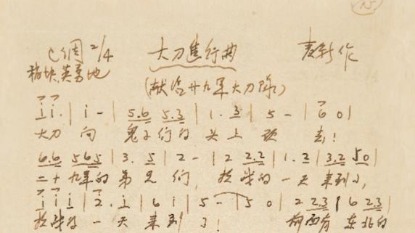 C调 2/4 大刀进行曲 麦新作
(献给廿九军大刀队)
i i. | i - | 5.6 5.3 | 1. 3 | 5 - | 6 0 |
大刀 向 鬼子们的 头上 砍 去!
6.6 5 6 5 | 3. 5 | 2 - | 2 2 2 | 1. 2 | 3.2 5 0 |
二十九军的 弟兄 们, 抗战的 一天 来到了,
i i i | 2. i | 6 i | 5 - | 5 0 | 2 2 3 | 6 2 3 |
抗战的 一天 来到 了! 前面有 东北的